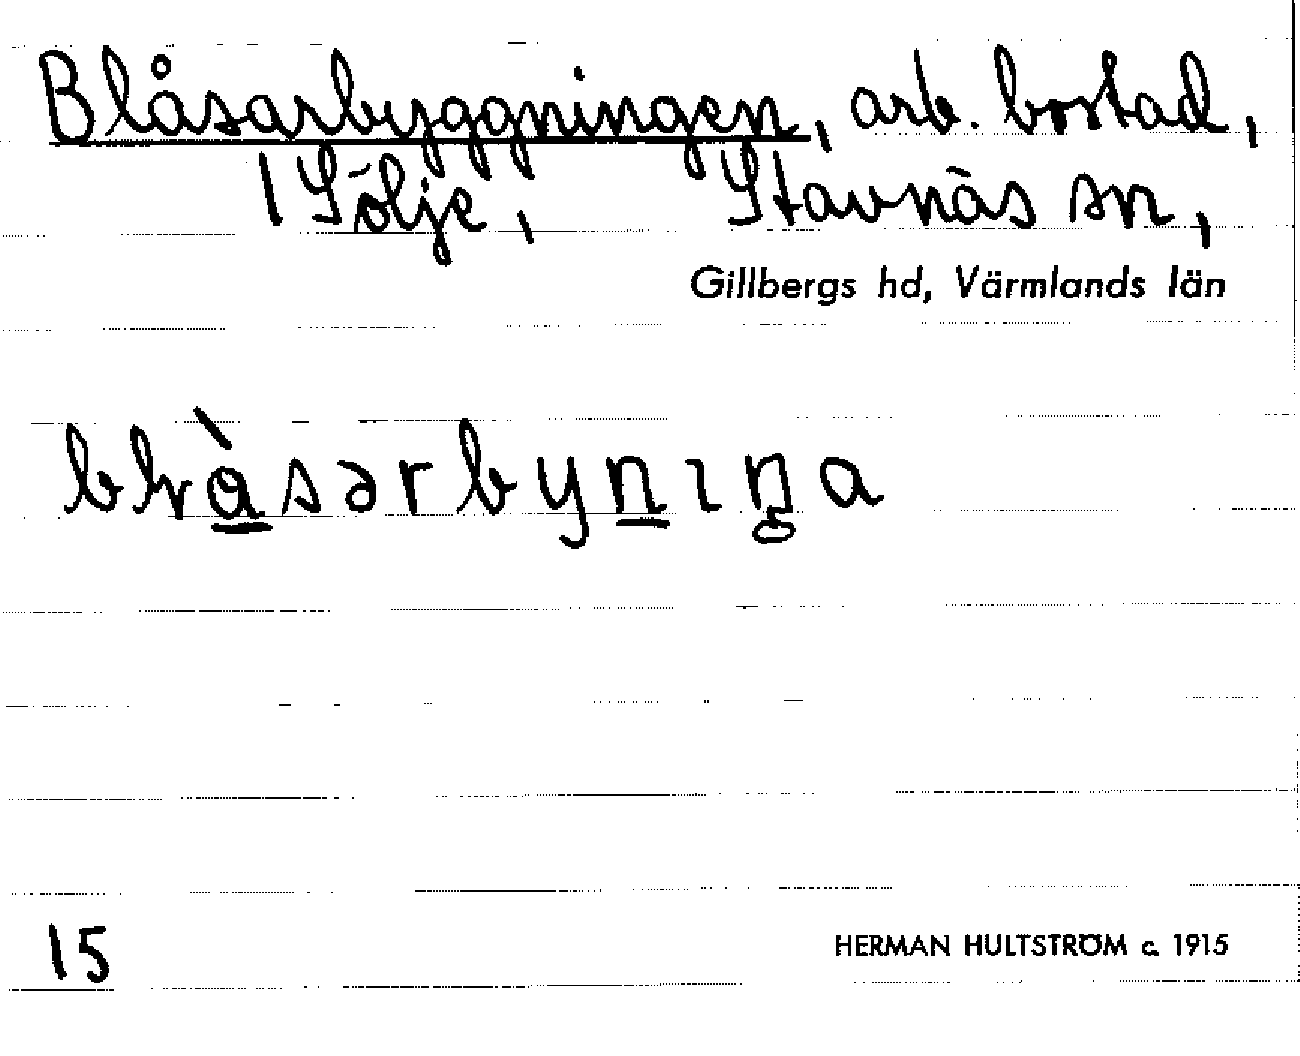 Blåsarbyggningen, arb. bostad,
1 Sölje, Stavnäs sn,
Gillbergs hd, Värmlands län
15
HERMAN HULTSTRÖM c. 1915